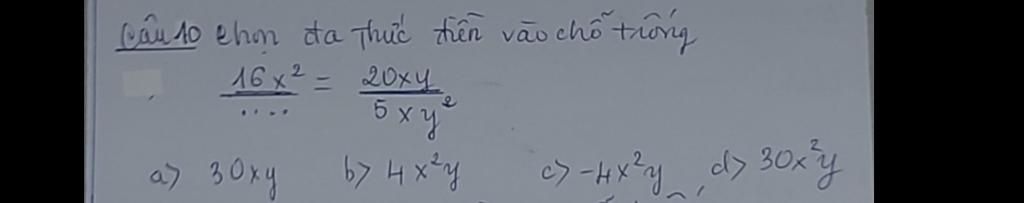 Câu 10 chọn đa thức điền vào chỗ trống
16x² / .... = 20xy / 5xy²
a) 30xy b) 4x²y c) -4x²y d) 30x²y